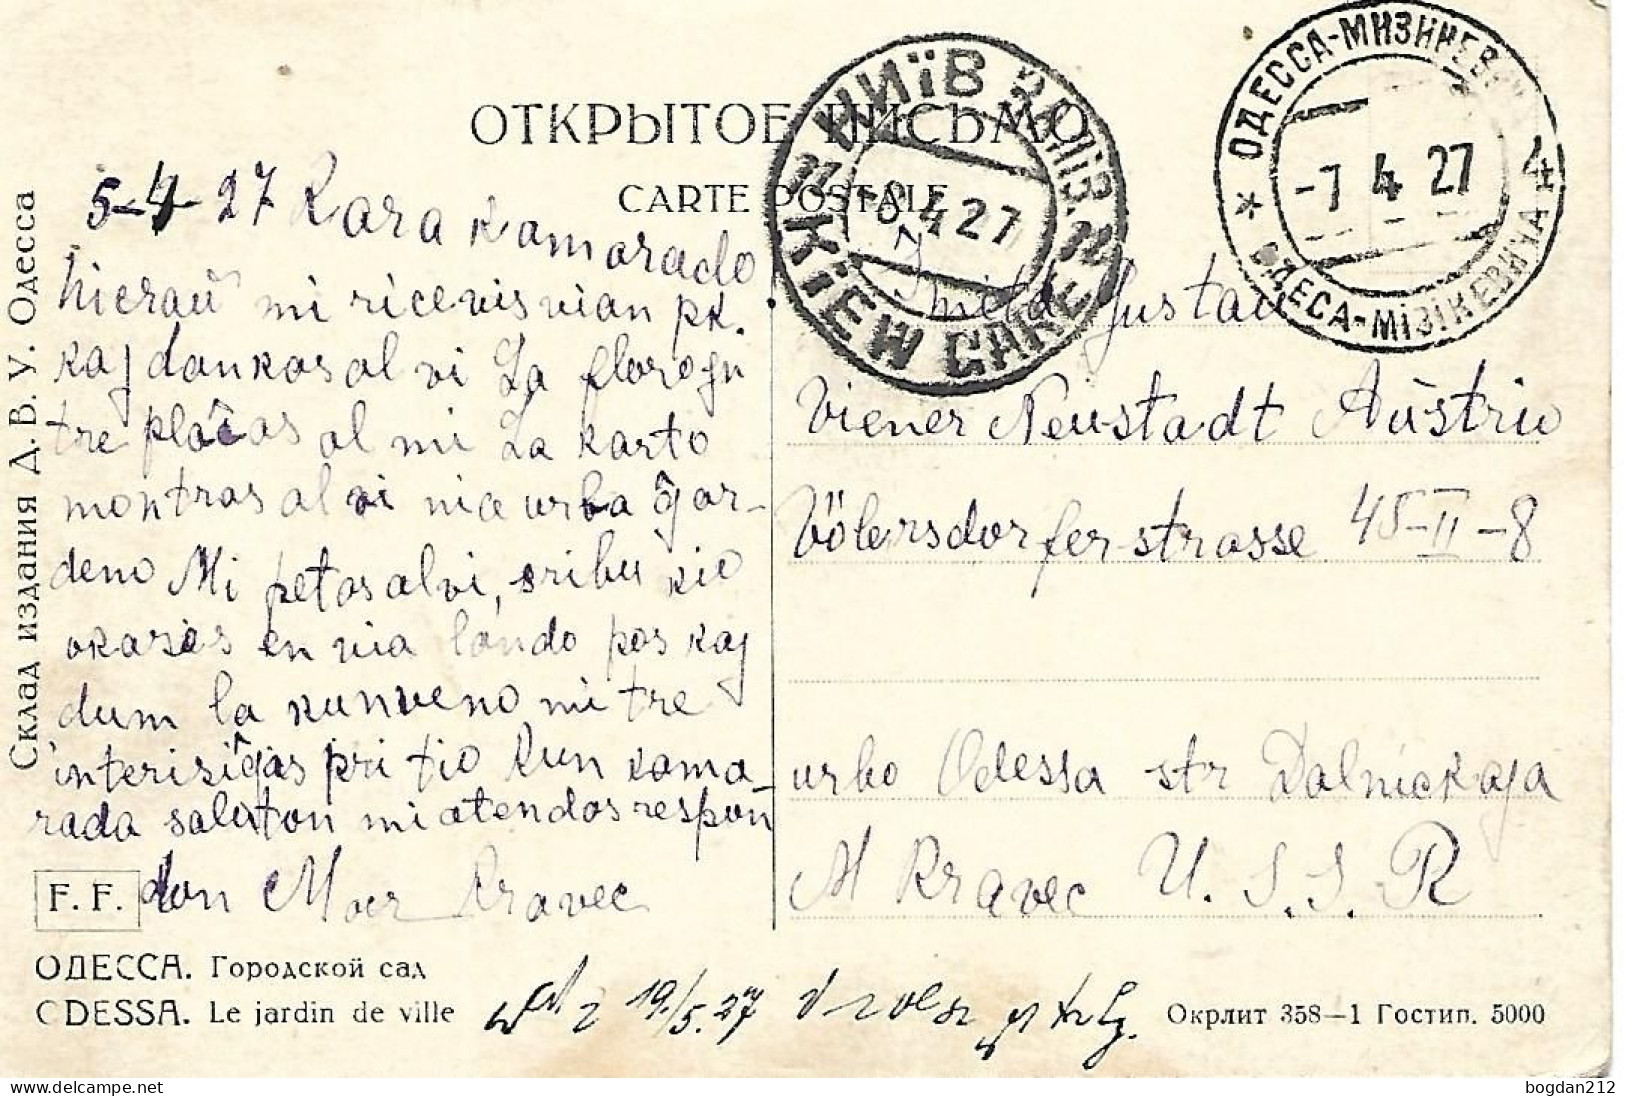 ОТКРЫТОЕ ПИСЬМО
CARTE POSTALE
Склад издания Д. В. У. Одесса
КИЇВ ЗАЛІЗ.
KÏEW GARE
-8 4 27
ОДЕССА-МИЗИКЕВИЧА
-7 4 27
4
ОДЕСА-МІЗІКЕВИЧА
5-4-27 Kara kamarado
hieraŭ mi ricevis vian pk.
kaj dankas al vi La
tre plaĉas al mi La karto
montras al vi nia urba ĝar-
deno Mi petas al vi, sribu kio
okazas en via lando pos kaj
dum la kunveno mi tre
interisiĝas pri tio Kun kama-
rada saluton mi atendas respon
don Kravec
Gustav
Viener Neustadt Aŭstrio
Völersdorferstrasse 45-II-8
urbo Odessa str Dalnickaja
M Kravec U. S. S. R
F. F.
ОДЕССА. Городской сад
ODESSA. Le jardin de ville
19./5.27
Окрлит 358—1 Гостип. 5000
delcampe.net
bogdan212